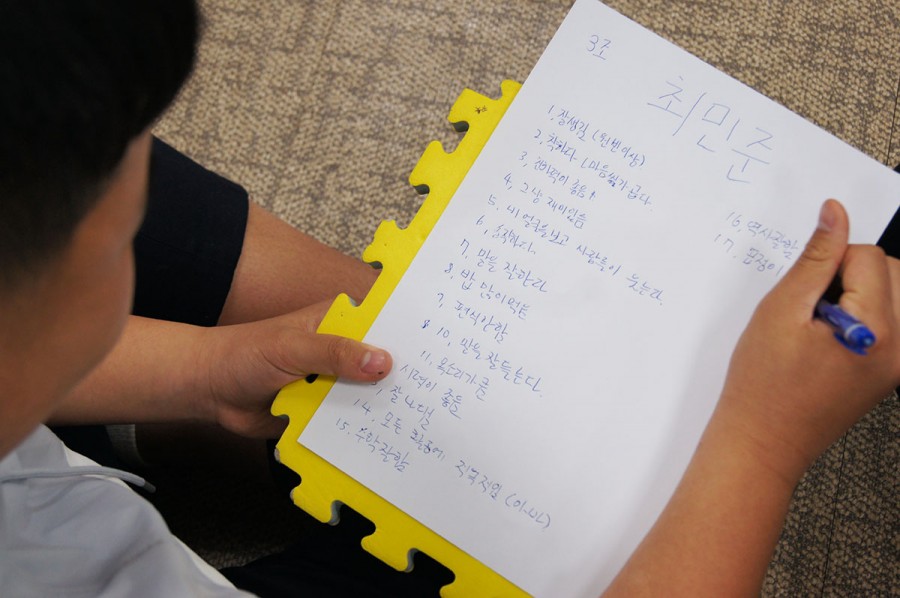 3조
최민준
1. 잘생김 (원빈이상)
2. 착하다. (마음씨가 곱다.
3. 기억력이 좋음
4. 그냥 재미있음
5. 내 얼굴을 보고 사람들이 웃는다.
6. 똑똑하다.
7. 말을 잘한다
8. 밥 많이 먹음
9. 편식 안함
10. 말을 잘 듣는다.
11. 목소리가 큼
시력이 좋음
잘 나댐
14. 모든 활동에 적극적임 (아마)
15. 수학잘함
16. 역사잘함
17. 표정이